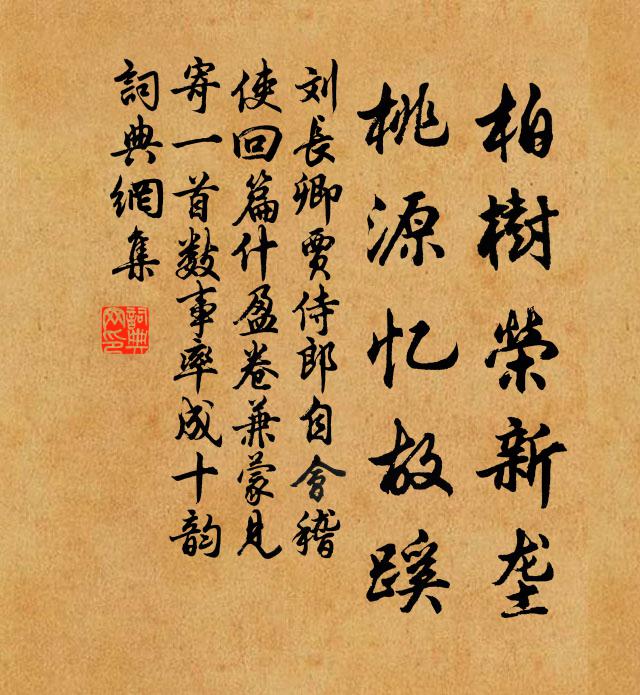 柏樹榮新垄
桃源忆故蹊
刘長卿賈侍郎自會稽
使回篇什盈卷兼蒙見
寄一首数事率成十韵
詞典網集
詞典
网印